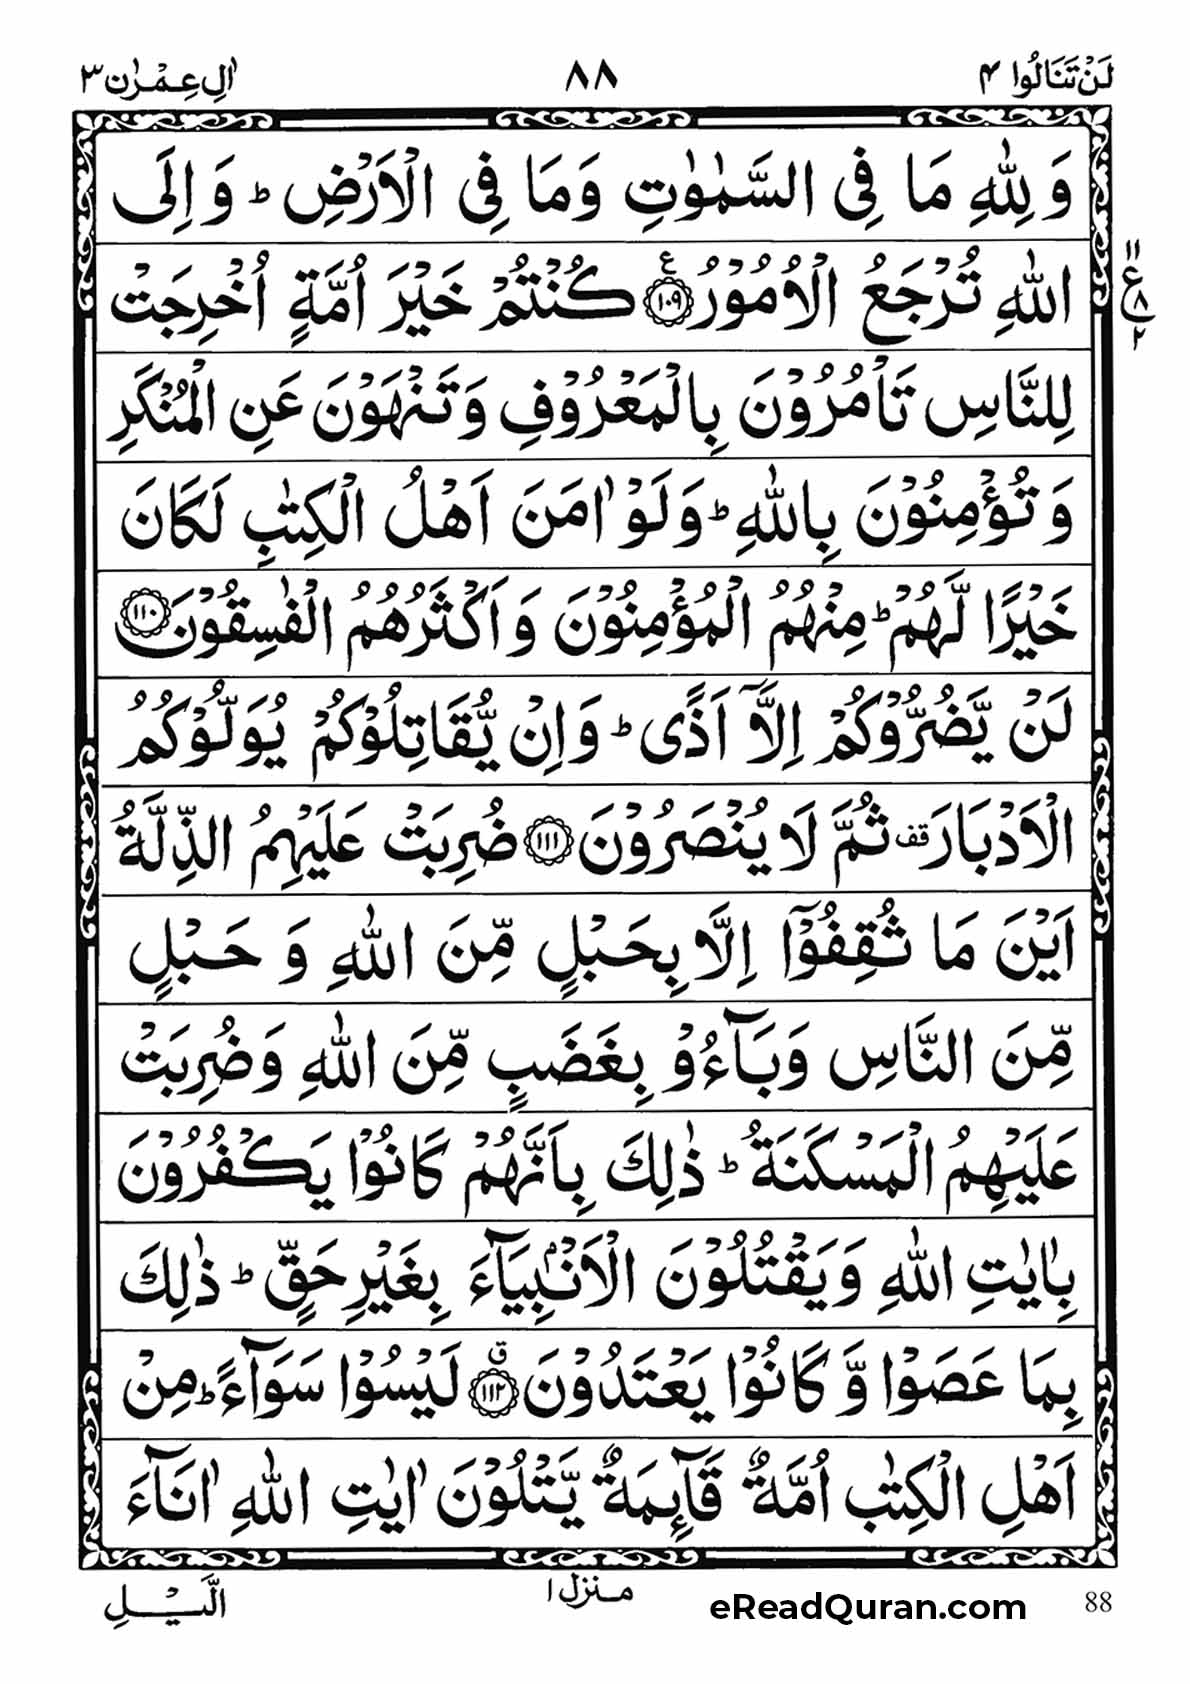 لَنْ تَنَالُوا ٤ ٨٨ اٰلِ عِمْرٰن ٣
وَ لِلّٰهِ مَا فِی السَّمٰوٰتِ وَمَا فِی الْاَرْضِ ؕ وَ اِلَی
اللّٰهِ تُرْجَعُ الْاُمُوْرُ ﴿۱۰۹﴾ ع كُنْتُمْ خَیْرَ اُمَّةٍ اُخْرِجَتْ
۱۱ ع ۸ ۲
لِلنَّاسِ تَاْمُرُوْنَ بِالْمَعْرُوْفِ وَتَنْهَوْنَ عَنِ الْمُنْكَرِ
وَتُؤْمِنُوْنَ بِاللّٰهِ ؕ وَلَوْ اٰمَنَ اَهْلُ الْكِتٰبِ لَكَانَ
خَیْرًا لَّهُمْ ؕ مِنْهُمُ الْمُؤْمِنُوْنَ وَ اَكْثَرُهُمُ الْفٰسِقُوْنَ ﴿۱۱۰﴾
لَنْ یَّضُرُّوْكُمْ اِلَّاۤ اَذًی ؕ وَاِنْ یُّقَاتِلُوْكُمْ یُوَلُّوْكُمُ
الْاَدْبَارَ قف ثُمَّ لَا یُنْصَرُوْنَ ﴿۱۱۱﴾ ضُرِبَتْ عَلَیْهِمُ الذِّلَّةُ
اَیْنَ مَا ثُقِفُوْۤا اِلَّا بِحَبْلٍ مِّنَ اللّٰهِ وَ حَبْلٍ
مِّنَ النَّاسِ وَبَآءُوْ بِغَضَبٍ مِّنَ اللّٰهِ وَضُرِبَتْ
عَلَیْهِمُ الْمَسْكَنَةُ ؕ ذٰلِكَ بِاَنَّهُمْ كَانُوْا یَكْفُرُوْنَ
بِاٰیٰتِ اللّٰهِ وَیَقْتُلُوْنَ الْاَنْۢبِیَآءَ بِغَیْرِ حَقٍّ ؕ ذٰلِكَ
بِمَا عَصَوْا وَّ كَانُوْا یَعْتَدُوْنَ ﴿۱۱۲﴾ ق لَیْسُوْا سَوَآءً ؕ مِنْ
اَهْلِ الْكِتٰبِ اُمَّةٌ قَآئِمَةٌ یَّتْلُوْنَ اٰیٰتِ اللّٰهِ اٰنَآءَ
منزل ۱ الَّیْلِ
eReadQuran.com 88